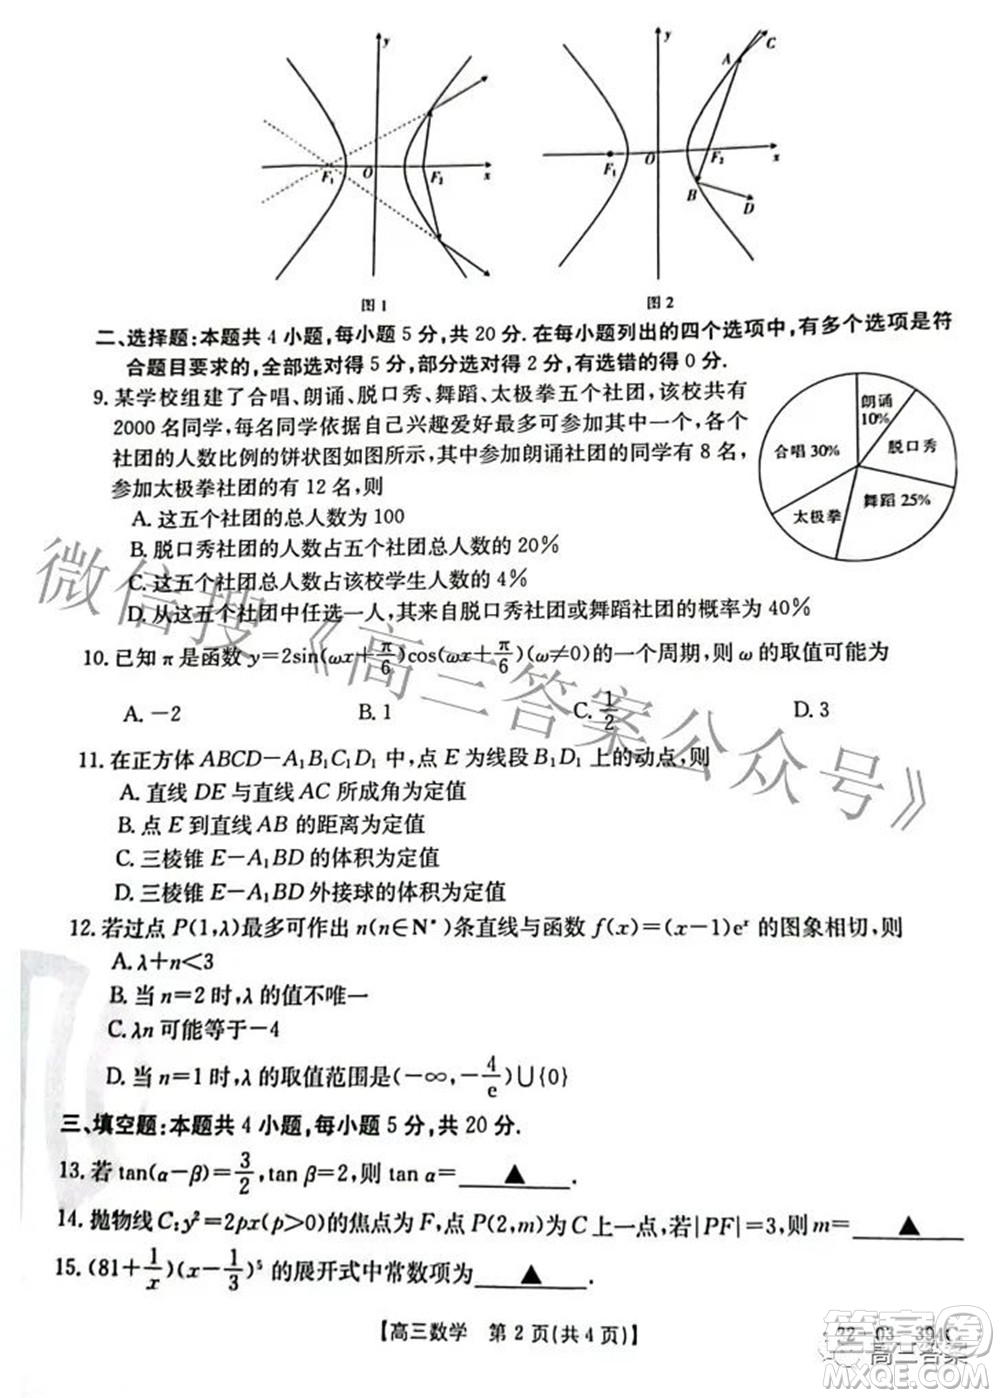 y
y
C
A
F₁
O
F₂
x
F₁
O
F₂
x
B
D
图 1
图 2
二、选择题:本题共 4 小题,每小题 5 分,共 20 分. 在每小题列出的四个选项中,有多个选项是符
合题目要求的,全部选对得 5 分,部分选对得 2 分,有选错的得 0 分.
9. 某学校组建了合唱、朗诵、脱口秀、舞蹈、太极拳五个社团,该校共有
2000 名同学,每名同学依据自己兴趣爱好最多可参加其中一个,各个
社团的人数比例的饼状图如图所示,其中参加朗诵社团的同学有 8 名,
参加太极拳社团的有 12 名,则
朗诵
10%
合唱 30%
脱口秀
舞蹈 25%
太极拳
A. 这五个社团的总人数为 100
B. 脱口秀社团的人数占五个社团总人数的 20%
C. 这五个社团总人数占该校学生人数的 4%
D. 从这五个社团中任选一人,其来自脱口秀社团或舞蹈社团的概率为 40%
10. 已知 π 是函数 y=2sin(ωx+π/6)cos(ωx+π/6)(ω≠0)的一个周期,则 ω 的取值可能为
A. −2 B. 1 C. 1/2 D. 3
11. 在正方体 ABCD−A₁B₁C₁D₁ 中,点 E 为线段 B₁D₁ 上的动点,则
A. 直线 DE 与直线 AC 所成角为定值
B. 点 E 到直线 AB 的距离为定值
C. 三棱锥 E−A₁BD 的体积为定值
D. 三棱锥 E−A₁BD 外接球的体积为定值
12. 若过点 P(1,λ)最多可作出 n(n∈N*)条直线与函数 f(x)=(x−1)eˣ 的图象相切,则
A. λ+n<3
B. 当 n=2 时,λ 的值不唯一
C. λn 可能等于−4
D. 当 n=1 时,λ 的取值范围是(−∞,−4/e)∪{0}
三、填空题:本题共 4 小题,每小题 5 分,共 20 分.
13. 若 tan(α−β)=3/2,tan β=2,则 tan α= ▲ .
14. 抛物线 C:y²=2px(p>0)的焦点为 F,点 P(2,m)为 C 上一点,若|PF|=3,则 m= ▲ .
15. (81+1/x)(x−1/3)⁵ 的展开式中常数项为 ▲ .
【高三数学 第 2 页(共 4 页)】
22−03−394C
微信搜《高三答案公众号》
高三答案
MXQE.COM